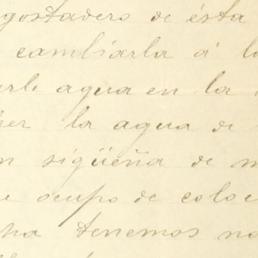 agostadero de ésta
cambiarla á l
arle agua en la
er la agua de
n sigüeña de m
e ocupo de coloc
ha tenemos no